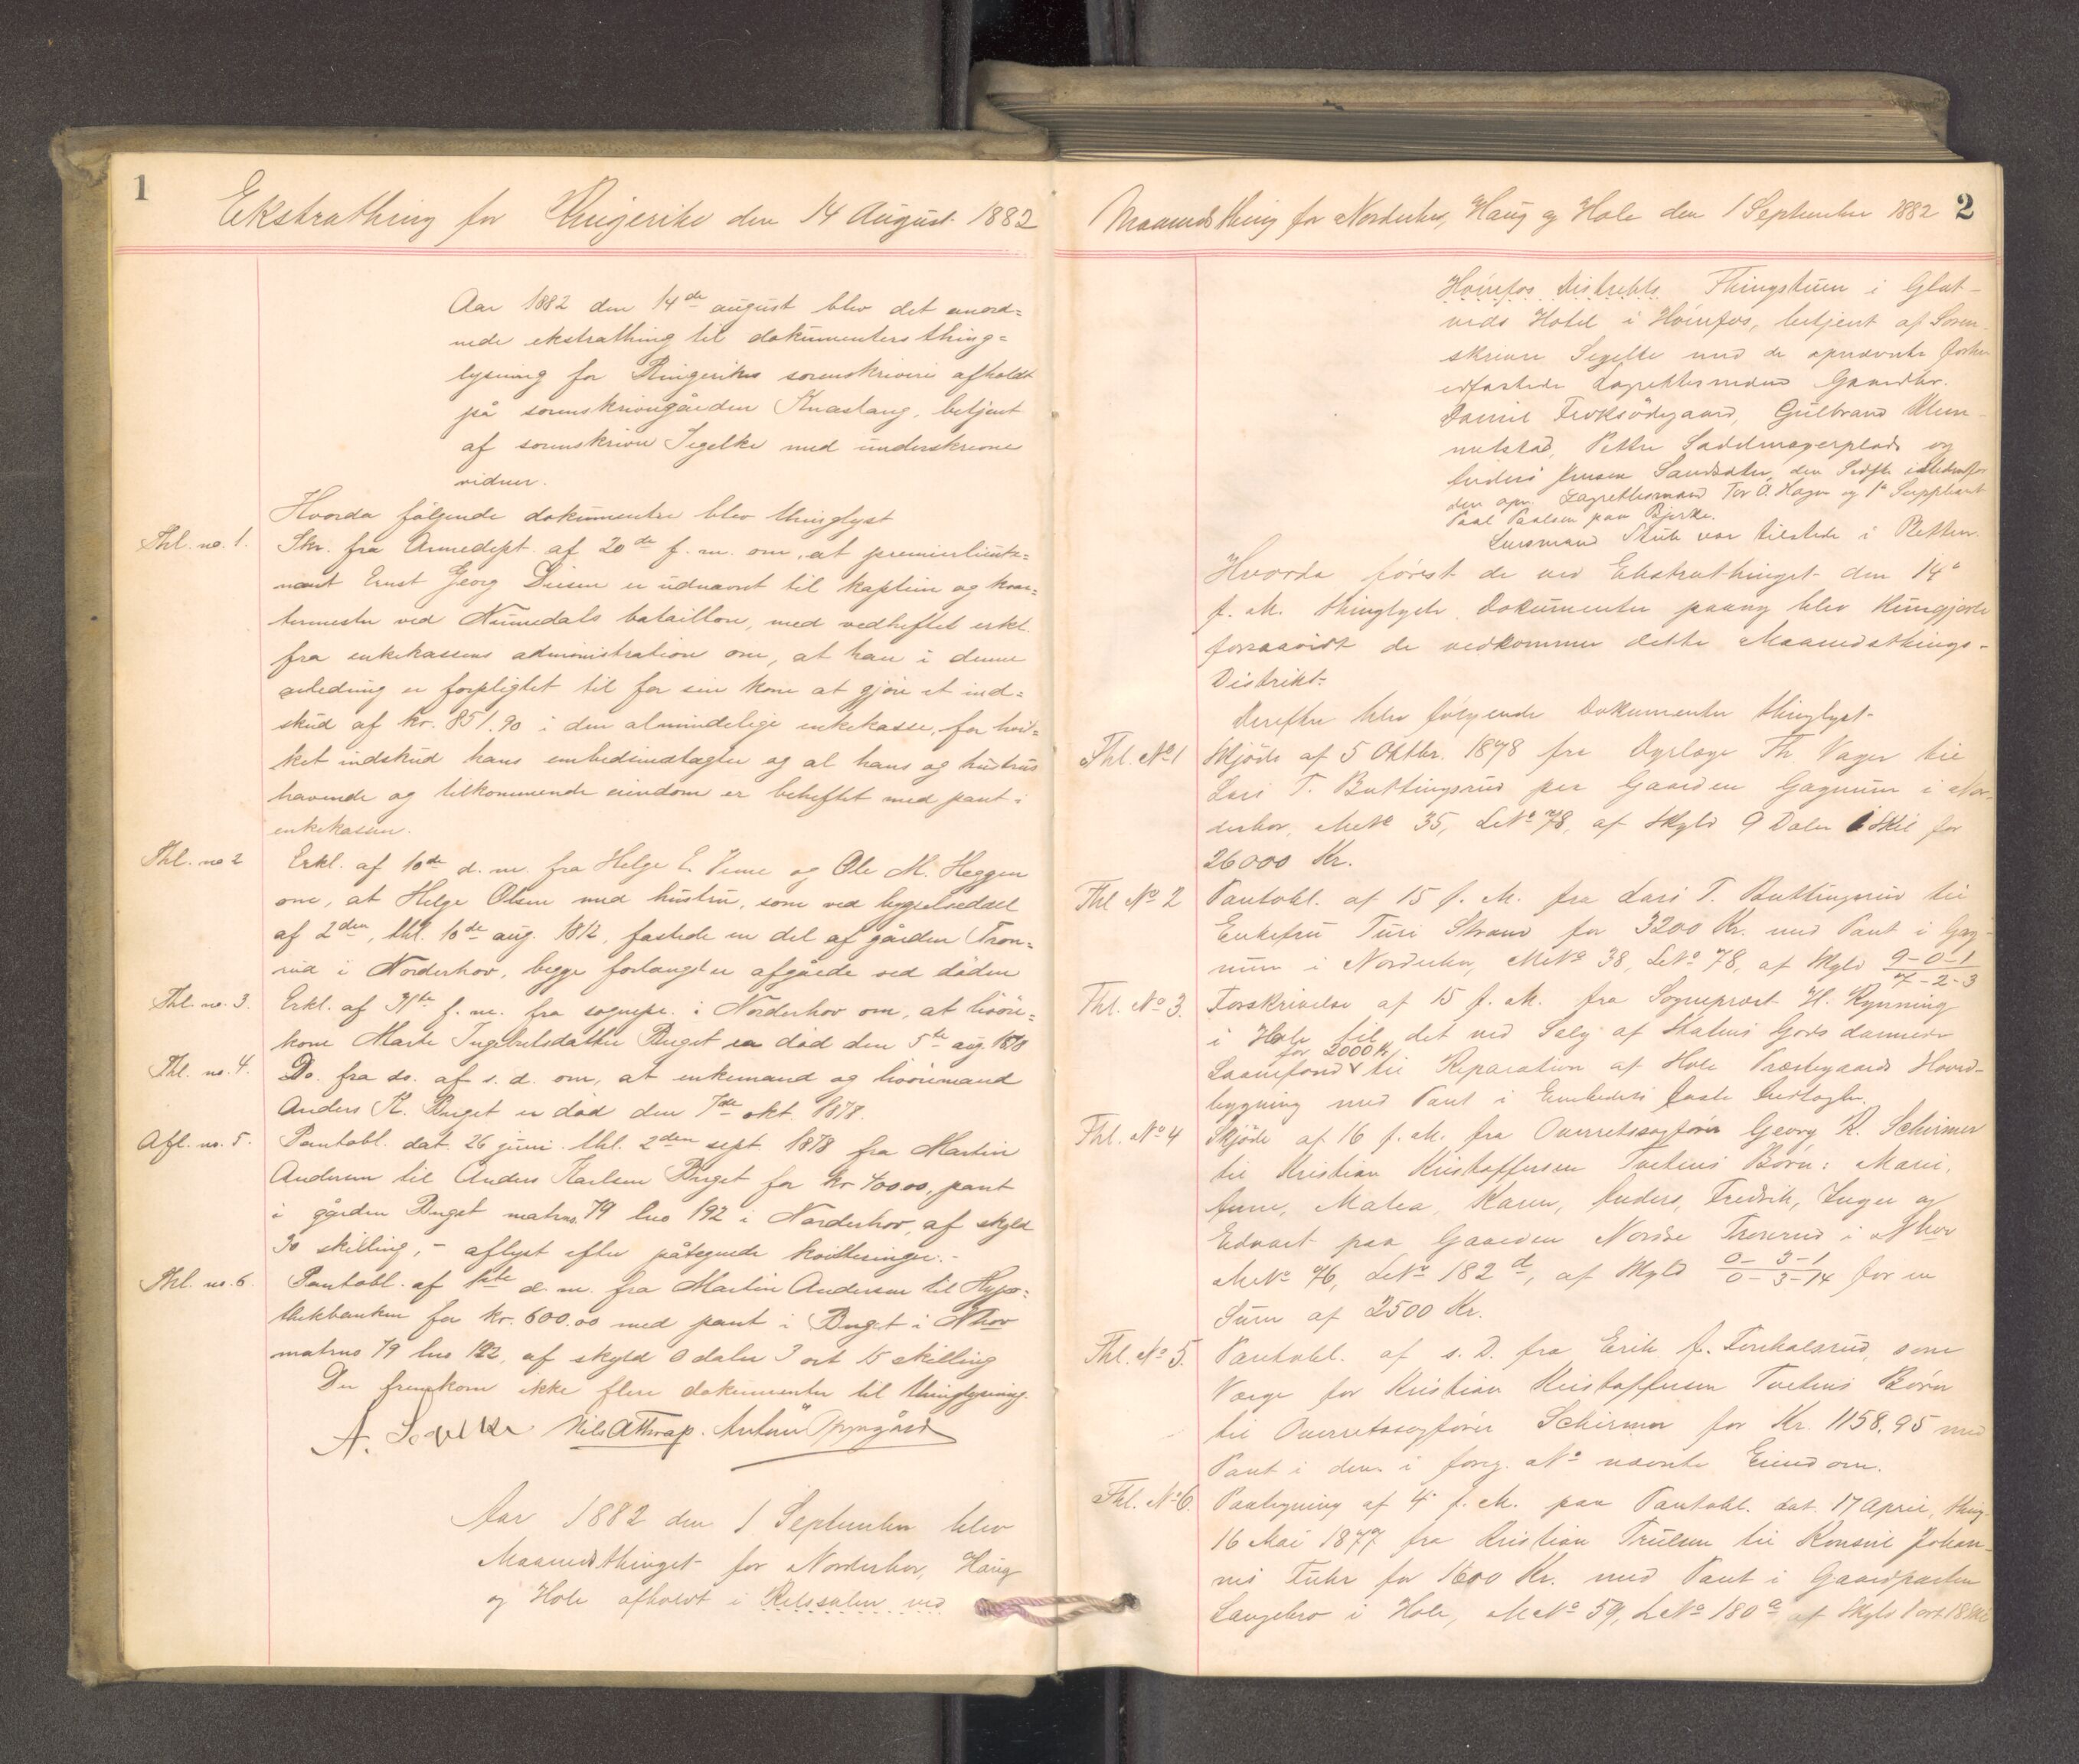 1
Ekstrathing for Ringerike den 14 August 1882
Aar 1882 den 14de august blev det anord=
nede ekstrathing til dokumenters thing=
lysning for Ringerikes sorenskriveri afholdt
på sorenskrivergården Knastang, betjent
af sorenskriver Segelke med underskrevne
vidner.
Hvorda følgende dokumenter blev thinglyst
Thl. no. 1. Skr. fra Armedept. af 20de f. m. om, at premierlieute=
nant Ernst Georg Diesen er udnævnt til kaptein og kvar=
termester ved Numedals bataillon, med vedheftet erkl.
fra enkekassens administration om, at han i denne
anledning er forpligtet til for sin kone at gjøre et ind=
skud af kr. 851.90 i den almindelige enkekasse, for hvil=
ket indskud hans embedsindtægter og al hans og hustrus
havende og tilkommende eiendom er beheftet med pant i
enkekassen.
Thl. no 2 Erkl. af 10de d. m. fra Helge E. Veme og Ole M. Heggen
om, at Helge Olsen med hustru, som ved bygselseddel
af 2den, thl. 10de aug. 1812, fæstede en del af gården Tron=
rud i Norderhov, begge forlængst er afgåede ved døden
Thl. no. 3. Erkl. af 31te f. m. fra sognepr. i Norderhov om, at livøre=
kone Marte Ingebretsdatter Buget er død den 5te aug. 1870
Thl. no. 4. Do. fra do. af s. d. om, at enkemand og livøremand
Anders K. Buget er død den 7de okt. 1878.
Afl. no. 5. Pantobl. dat. 26 juni thl. 2den sept. 1878 fra Martin
Andersen til Anders Karlsen Buget for kr 400.00, pant
i gården Buget matrno. 79 lno 192 i Norderhov, af skyld
30 skilling, - aflyst efter påtegnede kvitteringer. -
Thl. no. 6. Pantobl. af d. m. fra Martin Andersen til Hypo=
thekbanken for kr. 600.00 med pant i Buget i Nhov
matrno 79 lno 192, af skyld 0 daler 3 ort 15 skilling
Der fremkom ikke flere dokumenter til thinglysning.
A. Segelke Nils A Thrap.
Aar 1882 den 1 September blev
Maanedsthinget for Norderhov, Haug
og Hole afholdt i Retssalen ved
2
Maanedsthing for Norderhov, Haug og Hole den 1 September 1882
Hønefos Distrikts Thingstuen i Glat-
veds Hotel i Hønefos, betjent af Soren-
skriver Segelke med de opnævnte forhen
edfæstede Lagrettesmænd Gaardbr.
Daniel Troksødegaard, Gulbrand Klem-
metstad, Petter Sadelmagerplads og
Anders Jensen Sandsater, den Sidste istedenfor
den opn. Lagrettesmand Tor O. Hagen og 1e Suppleant
Paul Paulsen paa Bjerke.
Lensmand Stub var tilstede i Retten.
Hvorda først de ved Ekstrathinget den 14e
f. M. thinglyste Dokumenter paany blev kundgjorte
forsaavidt de vedkommer dette Maanedsthings-
Distrikt.
Derefter blev følgende Dokumenter thinglyst
Thl. No 1 Skjøde af 5 Oktbr. 1878 fra Dyrlæge Th. Vager til
Lars T. Buttingsrud paa Gaarden Gagnum i Nor-
derhov, MNo 35, LNo 78, af Skyld 9 Daler 1 Skil for
26000 Kr.
Thl No 2 Pantobl. af 15 f. M. fra Lars T. Buttingsrud til
Enkefru Turi Strand for 3200 Kr. med Pant i Gag-
num i Norderhov, MNo 38, LNo 78, af Skyld 9-0-1
7-2-3
Thl. No 3. Forskrivelse af 15 f. M. fra Sogneprest H. Rynning
i Hole til det ved Salg af Statens Gods dannede
for 2000 Kr
Laanefond til Reparation af Hole Præstegaards Hoved-
bygning med Pant i Embedets faste Indtægter.
Thl. No 4 Skjøde af 16 f. M. fra Overretssagfører Georg R. Schirmer
til Kristian Kristoffersen Tvetens Børn: Marie,
Anne, Matea, Karen, Anders, Fredrik, Inger og
Edvart paa Gaarden Nordre Tronrud i Nhov
MNo 76, LNo 182 d, af Skyld 0-3-1
0-3-14 for en
Sum af 2500 Kr.
Thl. No 5. Pantobl. af s. D. fra Erik A. Finkalsrud, som
Værge for Kristian Kristoffersen Tvetens Børn
til Overretssagfører Schirmer for Kr. 1158.95 med
Pant i den i foreg. No nævnte Eiendom.
Thl. No 6. Paategning af 4 f. M. paa Pantobl. dat. 17 April, thing.
16 Mai 1877 fra Kristian Trulsen til Konsul Johan-
nes Fuhr for 1600 Kr. med Pant i Gaardparten
Langebro i Hole, MNo 59, LNo 180 a af Skyld 1 ort 18 Skil